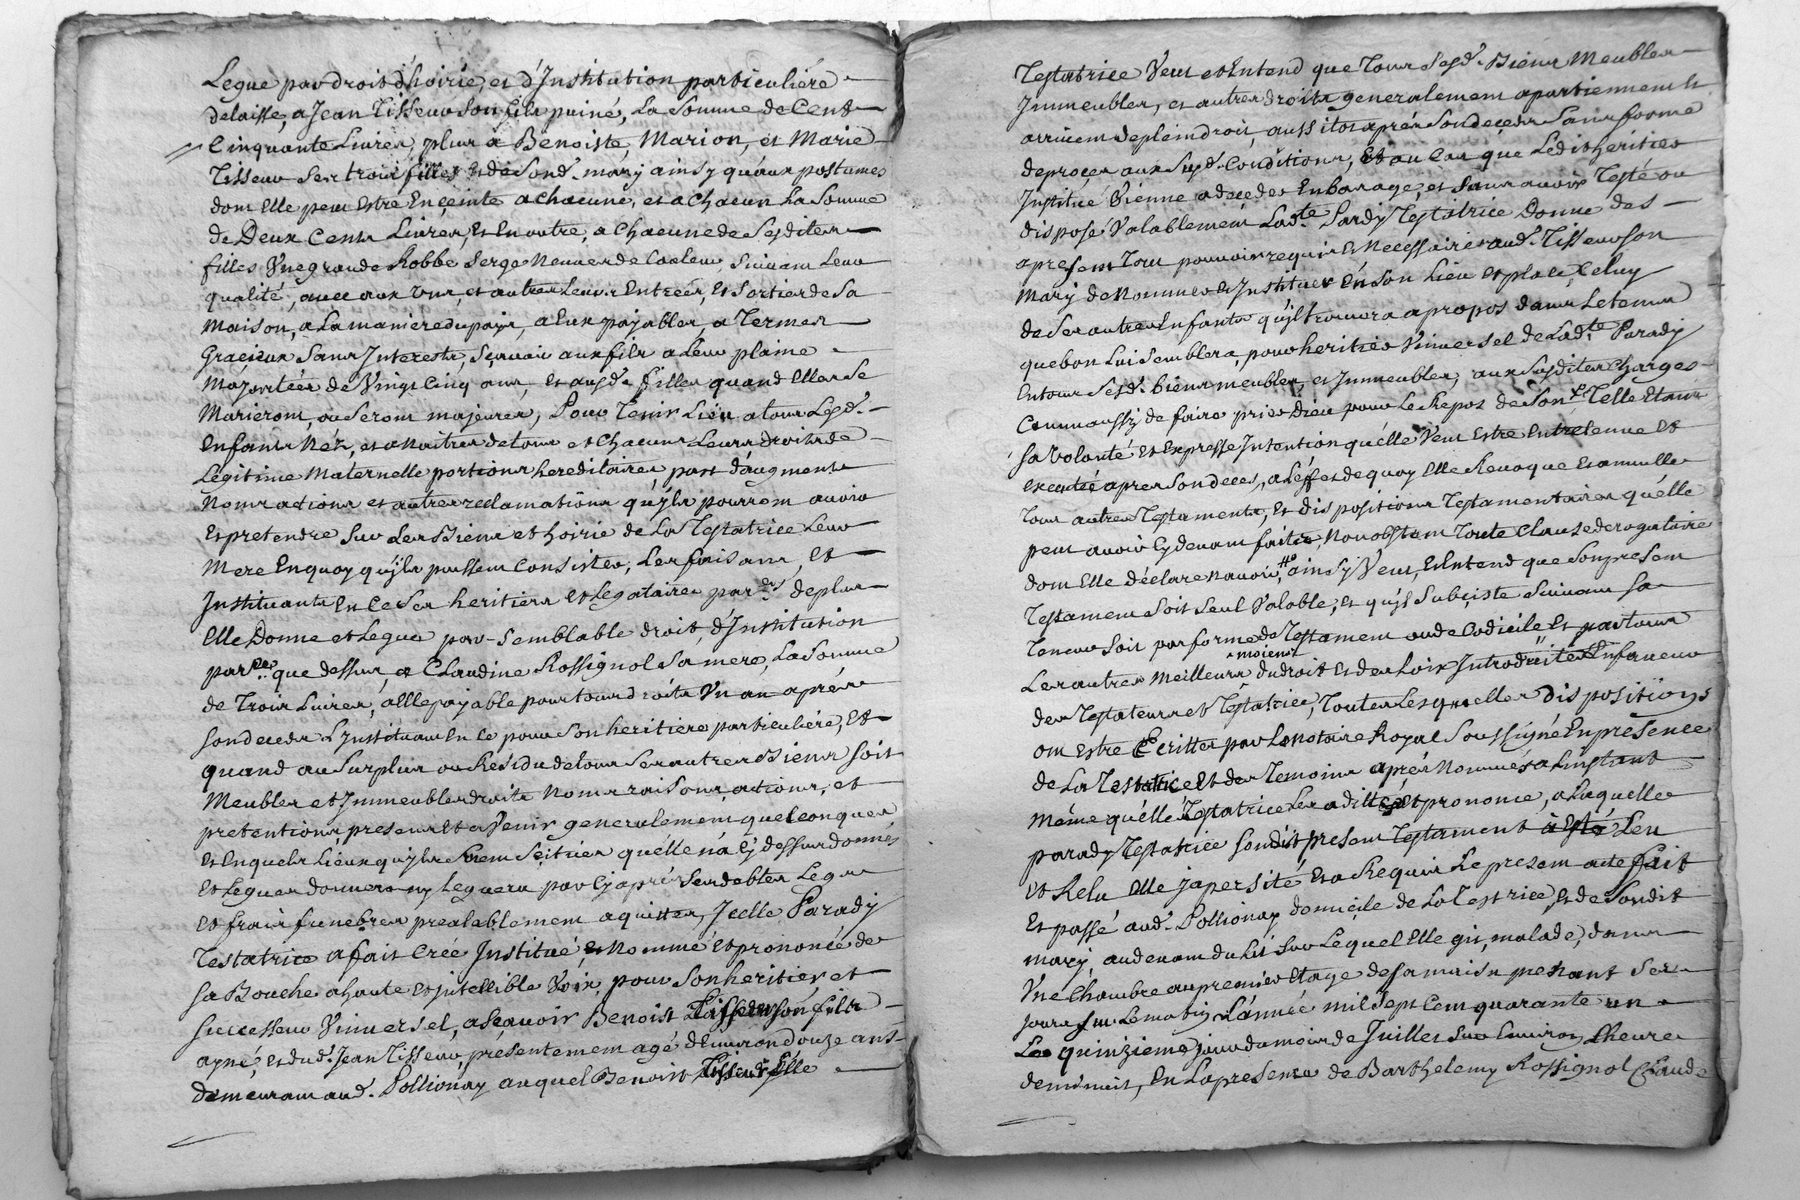 Legue par droit d'hoirie, et d'Institution particulière
delaisse, a Jean Tisseur son fils puiné, La Somme de Cent
Cinquante Livres, plus a Benoiste, Marion, et Marie
Tisseur ses trois filles et de Sond. mary ainsy qu'aux postumes
dont Elle peut Estre Enceinte a chacune, et a Chacun La Somme
de Deux Cents Livres, Et En outre, a Chacune de Sesdites
filles Vne grande Robbe Serge Neuve de Couleur, Suivant Leur
qualité, avec aux Vns, et autres Leurs Entrées, Et Sorties de Sa
Maison, a La maniere du pays, a Eux payables, a Termes
Gracieux Sans Interests, Sçavoir aux fils a Leur plaine
Majoritées de Vingt Cinq ans, Et ausd. filles quand Elles Se
Marieront, ou Seront majeures, Pour Tenir Lieu a tous Lesd.
Enfants Néz, et a Naitre de tous et Chacuns Leurs droits de
Légitime Maternelle portions hereditaires part d'augments
Noms actions et autres reclamations qu'ils pourront avoir
Et pretendre Sur Les Biens et hoirie de La Testatrice Leur
Mere En quoy qu'ils puissent Consister, Les faisant, Et
Instituants En Ce Ses heritiers Et Legataires par.res de plus
Elle Donne et Legue par Semblable droit d'Institution
par.re que dessus, a Claudine Rossignol Sa mere, La Somme
de Trois Livres, a Elle payable pour tous droits Vn an aprés
Son deceds L'Instituant En Ce pour Son heritiere particuliére, Et
quand au Surplus ou Résidu de tous Ses autres Biens Soit
Meubles et Immeubles droits Noms raisons, actions, et
pretentions presents Et a Venir generalement quelconques
Et En quels Lieux qu'ils Soient Scitués qu'elle n'a Cy dessus donnés
Et Legués donnera ny Leguera par Cy aprés Ses debtes Legs
Et frais funebres prealablement aquittés, Icelle Parady
Testatrice a fait Créé Institué, et Nommé Et prononcé de
Sa Bouche a haute Et Intellible Voix, pour Son heritier, et
Successeur Vniversel, a Sçavoir Benoist Tisseur Son fils
ayné, et dud. Jean Tisseur, présentement agé d'Environ douze ans
demeurant aud. Pollionay auquel Benoist Tisseur Elle
Testatrice Veut et Entend que Tous Sesd. Biens Meubles
Immeubles, et autres droits generalement apartiennent
arrivent de plein droit, aussitot aprés Son deceds Sans forme
de proces aux Susd. Conditions, Et au Cas que Ledit héritier
Institué Vienne a deceder En bas age, et Sans avoir Testé ou
disposé Valablement Lad.te Pardy Testatrice Donne des
a present Tout pouvoir requis et Necessaire aud. Tisseur Son
Mary de Nommer et Instituer En Son Lieu et place, Celuy
de Ses autres Enfants qu'il trouvera a propos dans Le temps
que bon Lui Semblera, pour heritier Vniversel de Lad.te Parady
En tous Sesd. biens meubles, et Immeubles, aux Susdites Charges
Comm'aussy de faire prier Dieu pour Le Repos de Son. Telle Etant
Sa Volonté et Expresse Intention qu'elle Veut Estre Entretenue et
executée aprés Son deces, a L'effet de quoy Elle Revoque Et annulle
Tous autres Testaments, Et dispositions Testamentaires qu'elle
peut avoir Cy devant faites, Nonobstant Toute Clause derogataire
dont Elle déclare n'avoir, ainsy Veut, Et Entend que Son present
Testament Soit Seul Valable, et qu'il Subsiste Suivant Sa
Teneur Soit par forme de Testament ou de Codicile Et par tous
Les autres Meilleurs moiens du droit Et des Loix Introduites En faveur
des Testateurs et Testatrice, Toutes Lesquelles dispositions
ont Estre Ecrittes par Le notaire Royal Soussigné En presence
de La Testatrice Et des Temoins aprés Nommés a L'instant
même qu'elle Testatrice Les a dittes et prononcé, a Laquelle
parady Testatrice Sondit present Testament a Esté Leu
et Relu Elle y a persité Et a Requis Le present acte fait
Et passé aud. Pollionay domicile de La Testrice, Et de Sondit
mary, au devant du Lit Sur Lequel Elle git, malade, dans
Vne Chambre au premier Etage de Sa maison prenant Ses
jours Sur Le matin L'année mil Sept Cent quarante un
Le quinzieme jour du mois de Juillet Sur Environ L'heure
de minuit, En La presence de Barthelemy Rossignol Claude